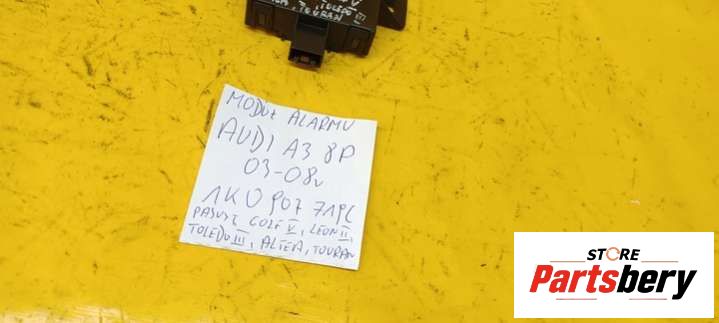 V
, TOLEDO III
, TOURAN
MODUŁ ALARMU
AUDI A3 8P
03-08r
1K0 907 719C
PASUJE GOLF V, LEON II,
TOLEDO III, ALTEA, TOURAN
STORE
Partsbery